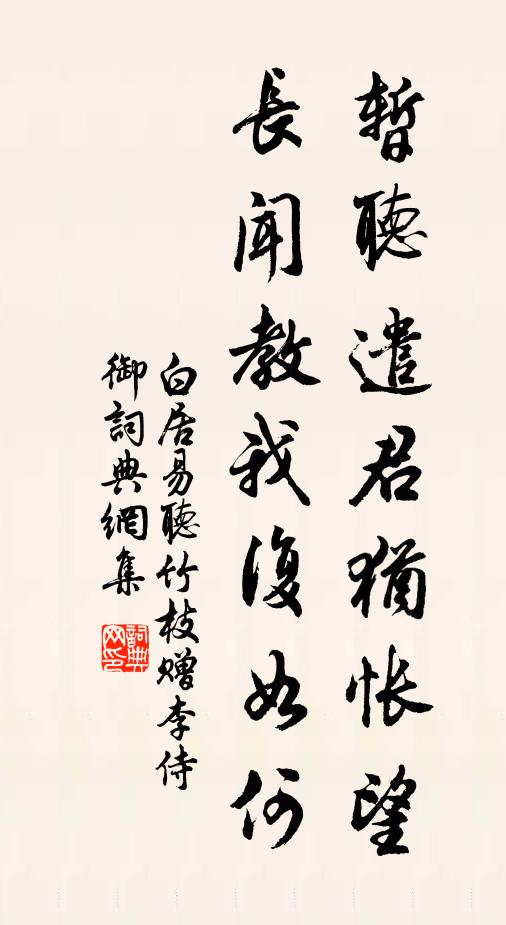 暫聽遣君猶悵望
長聞教我復如何
白居易聽竹枝贈李侍
御詞典網集
詞典網印